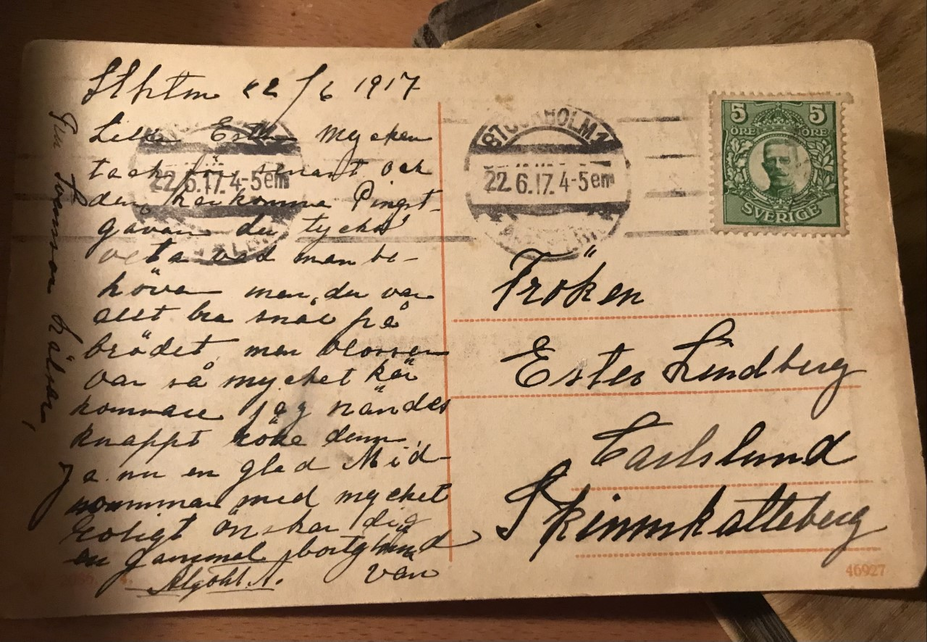 Sthlm 22/6 1917
Lilla Ester Mycken
tack för senast och
den kärkomna Pingst-
gåvan du tycks
veta vad man be-
höver men du var
allt bra snål på
brödet, men blosser
var så mycket kär
komnare jag nändes
knappt röke dem,
Ja nu en glad Mid-
sommar med mycket
roligt önskar dig
en gammal bortglömd
vän
hälsar,
STOCKHOLM 1
22.6.17.4-5em
22.6.17.4-5em
5 5
ÖRE ÖRE
SVERIGE
Fröken
Ester Lindberg
Carlslund
Skinnkatteberg
46927